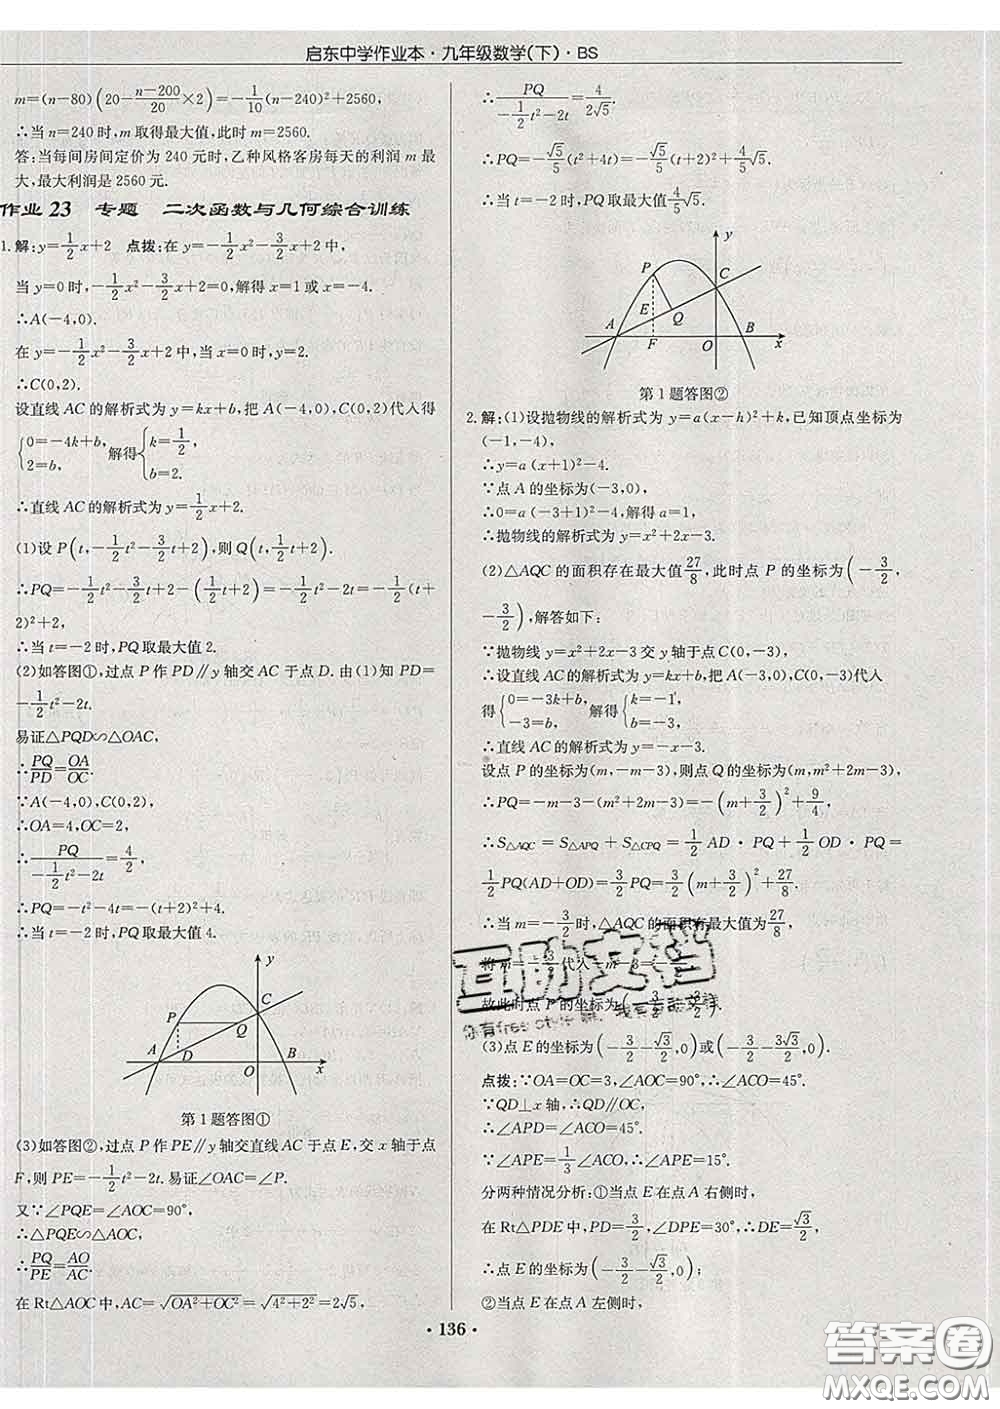 启东中学作业本·九年级数学(下)·BS
m=(n-80)(20-\frac{n-200}{20}×2)=-\frac{1}{10}(n-240)²+2560,
∴当 n=240 时,m 取得最大值,此时 m=2560.
答:当每间房间定价为 240 元时,乙种风格客房每天的利润 m 最
大,最大利润是 2560 元.
作业 23 专题 二次函数与几何综合训练
1.解:y=\frac{1}{2}x+2 点拨:在 y=-\frac{1}{2}x²-\frac{3}{2}x+2 中,
当 y=0 时,-\frac{1}{2}x²-\frac{3}{2}x+2=0,解得 x=1 或 x=-4.
∴A(-4,0).
在 y=-\frac{1}{2}x²-\frac{3}{2}x+2 中,当 x=0 时,y=2.
∴C(0,2).
设直线 AC 的解析式为 y=kx+b,把 A(-4,0),C(0,2)代入得
{0=-4k+b, 2=b, 解得 {k=\frac{1}{2}, b=2.
∴直线 AC 的解析式为 y=\frac{1}{2}x+2.
(1)设 P(t,-\frac{1}{2}t²-\frac{3}{2}t+2),则 Q(t,\frac{1}{2}t+2).
∴PQ=-\frac{1}{2}t²-\frac{3}{2}t+2-(\frac{1}{2}t+2)=-\frac{1}{2}t²-2t=-\frac{1}{2}(t+
2)²+2,
∴当 t=-2 时,PQ 取最大值 2.
(2)如答图①,过点 P 作 PD∥y 轴交 AC 于点 D. 由(1)知 PD=
-\frac{1}{2}t²-2t.
易证△PQD∽△OAC,
∴\frac{PQ}{PD}=\frac{OA}{OC}.
∵A(-4,0),C(0,2),
∴OA=4,OC=2,
∴\frac{PQ}{-\frac{1}{2}t²-2t}=\frac{4}{2},
∴PQ=-t²-4t=-(t+2)²+4.
∴当 t=-2 时,PQ 取最大值 4.
y
P
C
Q
A
D
O
B
x
第 1 题答图①
(3)如答图②,过点 P 作 PE∥y 轴交直线 AC 于点 E,交 x 轴于点
F,则 PE=-\frac{1}{2}t²-2t. 易证∠OAC=∠P.
又∵∠PQE=∠AOC=90°,
∴△PQE∽△AOC,
∴\frac{PQ}{PE}=\frac{AO}{AC}.
在 Rt△AOC 中,AC=\sqrt{OA²+OC²}=\sqrt{4²+2²}=2√5,
∴\frac{PQ}{-\frac{1}{2}t²-2t}=\frac{4}{2√5}.
∴PQ=-\frac{√5}{5}(t²+4t)=-\frac{√5}{5}(t+2)²+\frac{4}{5}√5.
∴当 t=-2 时,PQ 取最大值\frac{4}{5}√5.
y
P
C
E
Q
A
F
O
B
x
第 1 题答图②
2.解:(1)设抛物线的解析式为 y=a(x-h)²+k,已知顶点坐标为
(-1,-4),
∴y=a(x+1)²-4.
∵点 A 的坐标为(-3,0),
∴0=a(-3+1)²-4,解得 a=1,
∴抛物线的解析式为 y=x²+2x-3.
(2)△AQC 的面积存在最大值\frac{27}{8},此时点 P 的坐标为(-\frac{3}{2},
-\frac{3}{2}),解答如下:
∵抛物线 y=x²+2x-3 交 y 轴于点 C(0,-3),
∴设直线 AC 的解析式为 y=kx+b,把 A(-3,0),C(0,-3)代入
得{0=-3k+b, -3=b, 解得{k=-1, b=-3.
∴直线 AC 的解析式为 y=-x-3.
设点 P 的坐标为(m,-m-3),则点 Q 的坐标为(m,m²+2m-3),
∴PQ=-m-3-(m²+2m-3)=-(m+\frac{3}{2})²+\frac{9}{4},
∴S△AQC=S△APQ+S△CPQ=\frac{1}{2}AD·PQ+\frac{1}{2}OD·PQ=
\frac{1}{2}PQ(AD+OD)=\frac{3}{2}PQ=-\frac{3}{2}(m+\frac{3}{2})²+\frac{27}{8},
∴当 m=-\frac{3}{2}时,△AQC 的面积有最大值为\frac{27}{8},
将 m=-\frac{3}{2}代入-m-3=-\frac{3}{2},
故此时点 P 的坐标为(-\frac{3}{2},-\frac{3}{2}).
(3)点 E 的坐标为(-\frac{3}{2}-\frac{√3}{2},0)或(-\frac{3}{2}-\frac{3√3}{2},0).
点拨:∵OA=OC=3,∠AOC=90°,∴∠ACO=45°.
∵QD⊥x 轴,∴QD∥OC,
∴∠APD=∠ACO=45°.
∵∠APE=\frac{1}{3}∠ACO,∴∠APE=15°.
分两种情况分析:①当点 E 在点 A 右侧时,
在 Rt△PDE 中,PD=\frac{3}{2},∠DPE=30°,∴DE=\frac{√3}{2},
∴点 E 的坐标为(-\frac{3}{2}-\frac{√3}{2},0);
②当点 E 在点 A 左侧时,
互助文档
·136·
答案圈
MXQE.COM